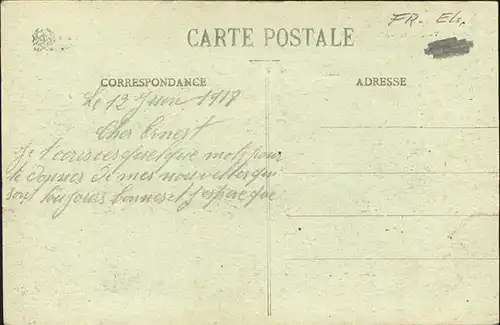 FR. Els.
CARTE POSTALE
CORRESPONDANCE
ADRESSE
Le 12 Juin 1918
Cher Ernest
Je t'ecris ces quelque mot pour
te donner de mes nouvelles qui
sont toujours bonnes et j'espere que